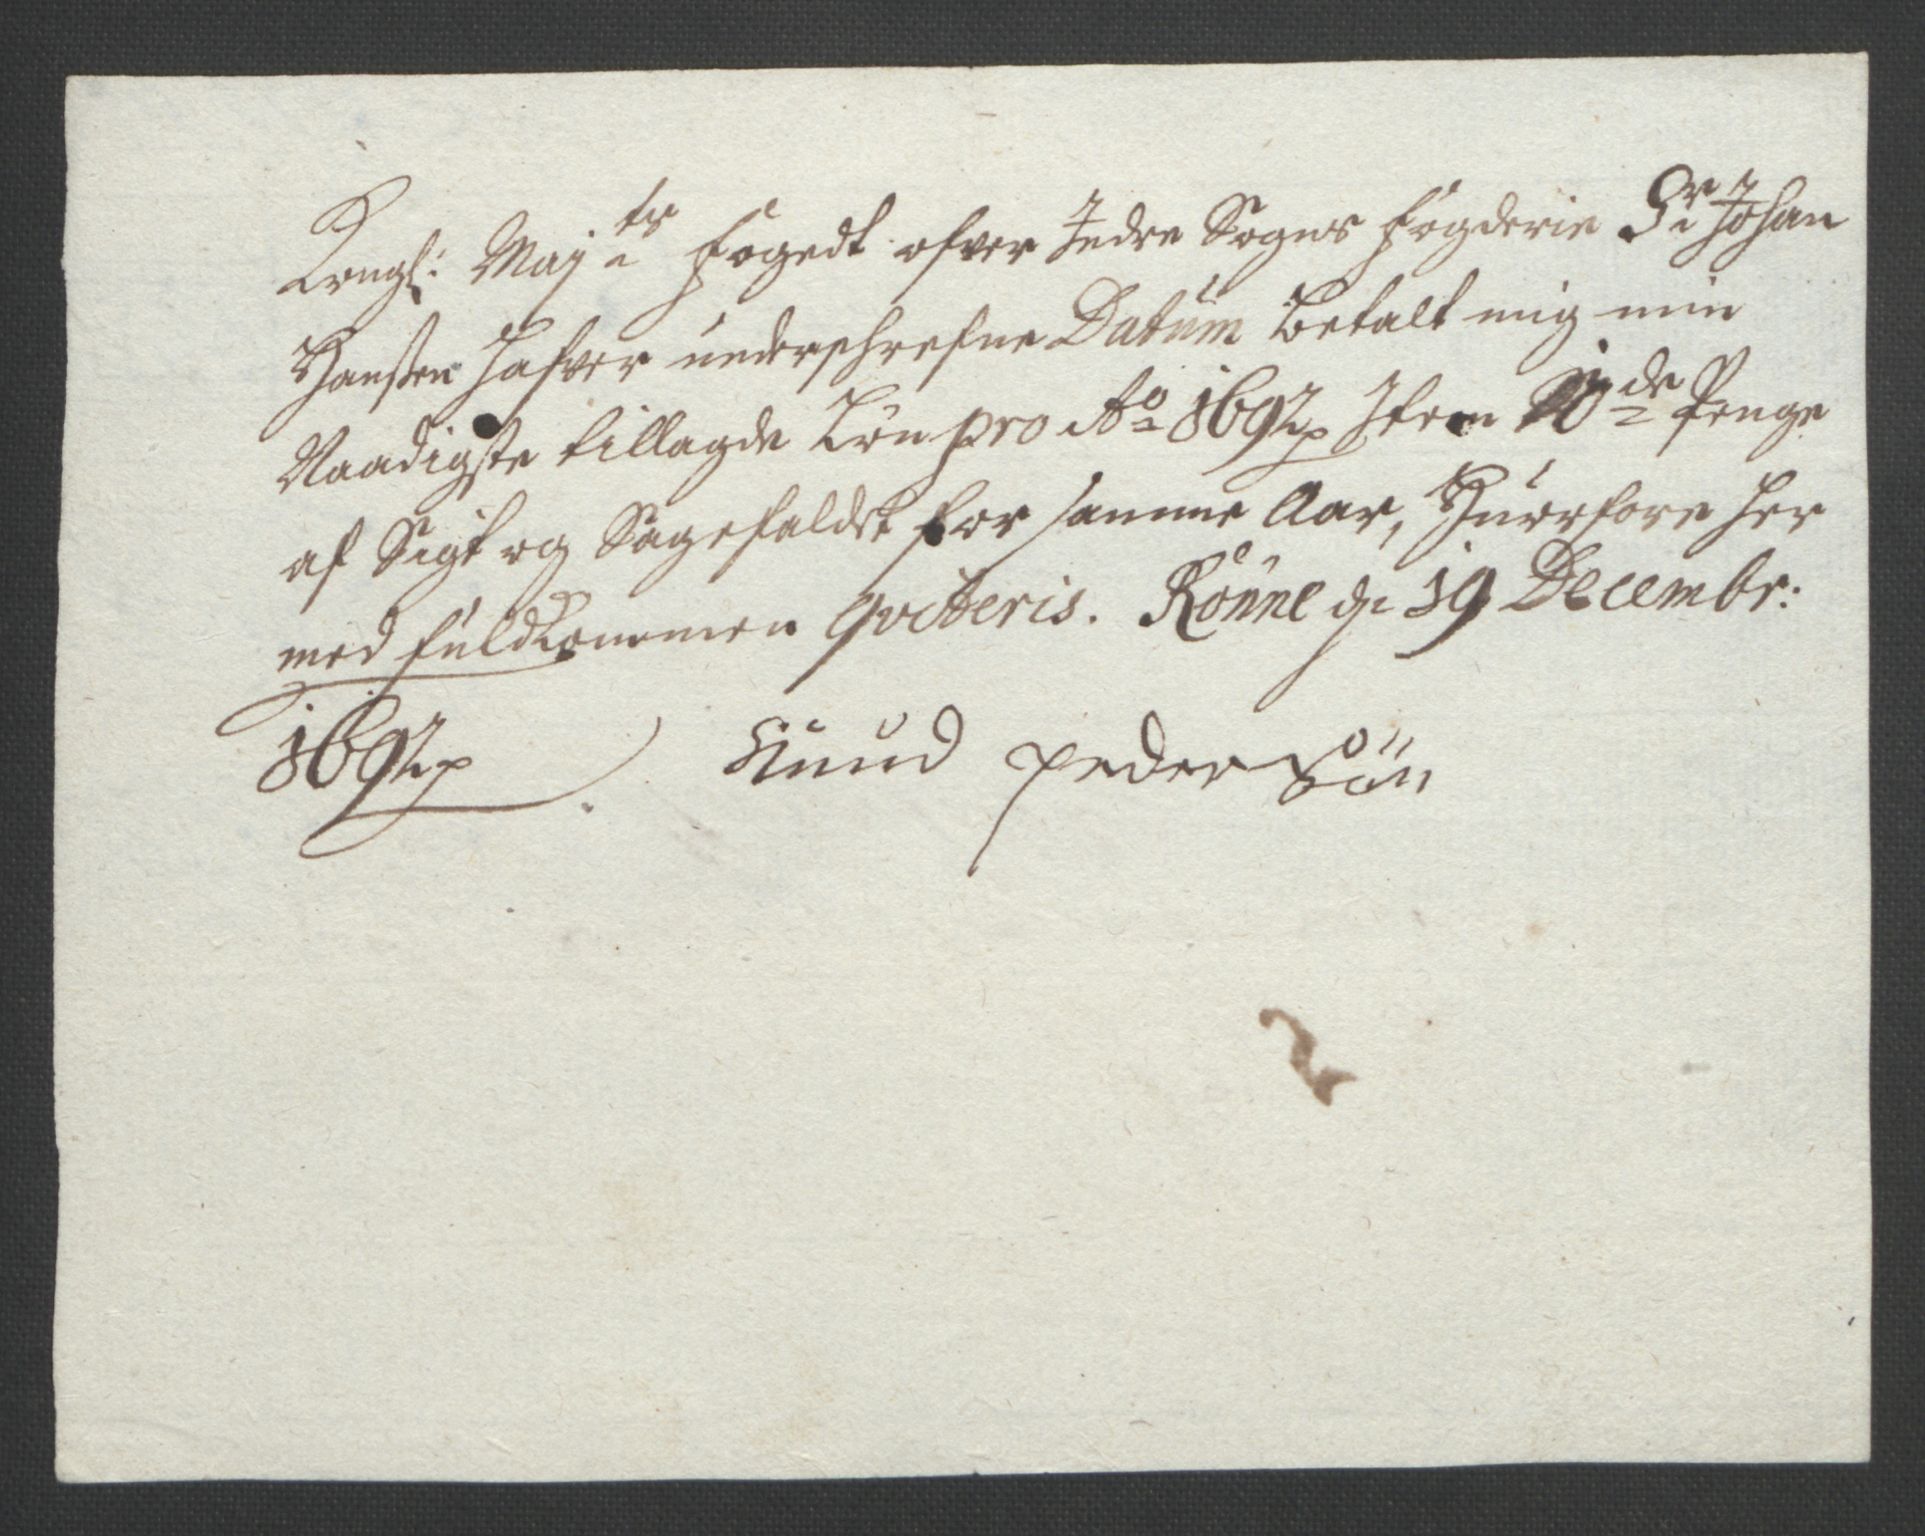 Kongl: Maÿts Fogedt ofver Indre Sogns Fogderie Sr Johan
Hanßen hafver underschrefne Datum betalt mig min
Naadigste tillagde Løn pro Ao 1692, Item 10de Penge
af Sigt og Sagefaldet for samme Aar, Hvorfore her
med fuldkommen qvitteris. Rönne d. 19 Decembr:
1692
Knud pederSøn